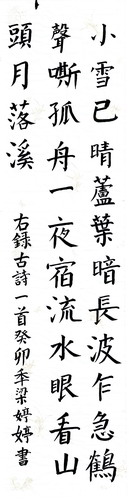 小雪已晴蘆葉暗長波乍急鶴
聲嘶孤舟一夜宿流水眼看山
頭月落溪
右錄古詩一首癸卯年梁婷婷書